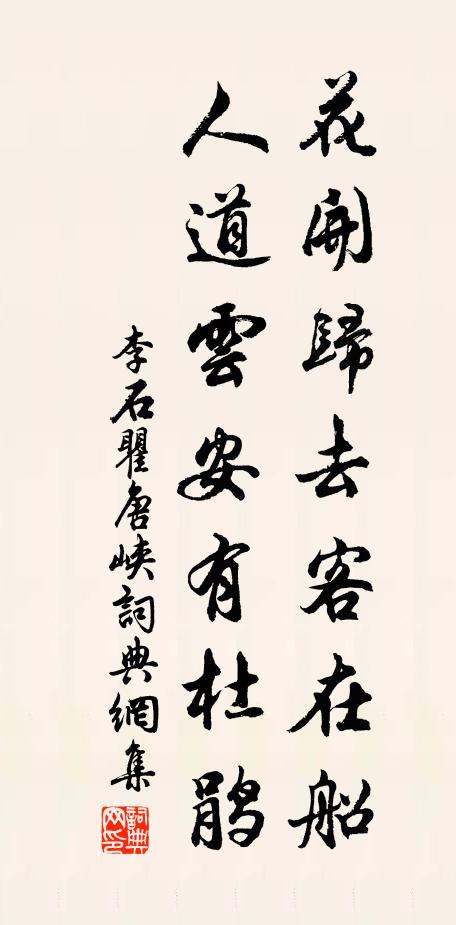 花開歸去客在船
人道雲安有杜鵑
李石瞿唐峽詞典網集
詞典網印